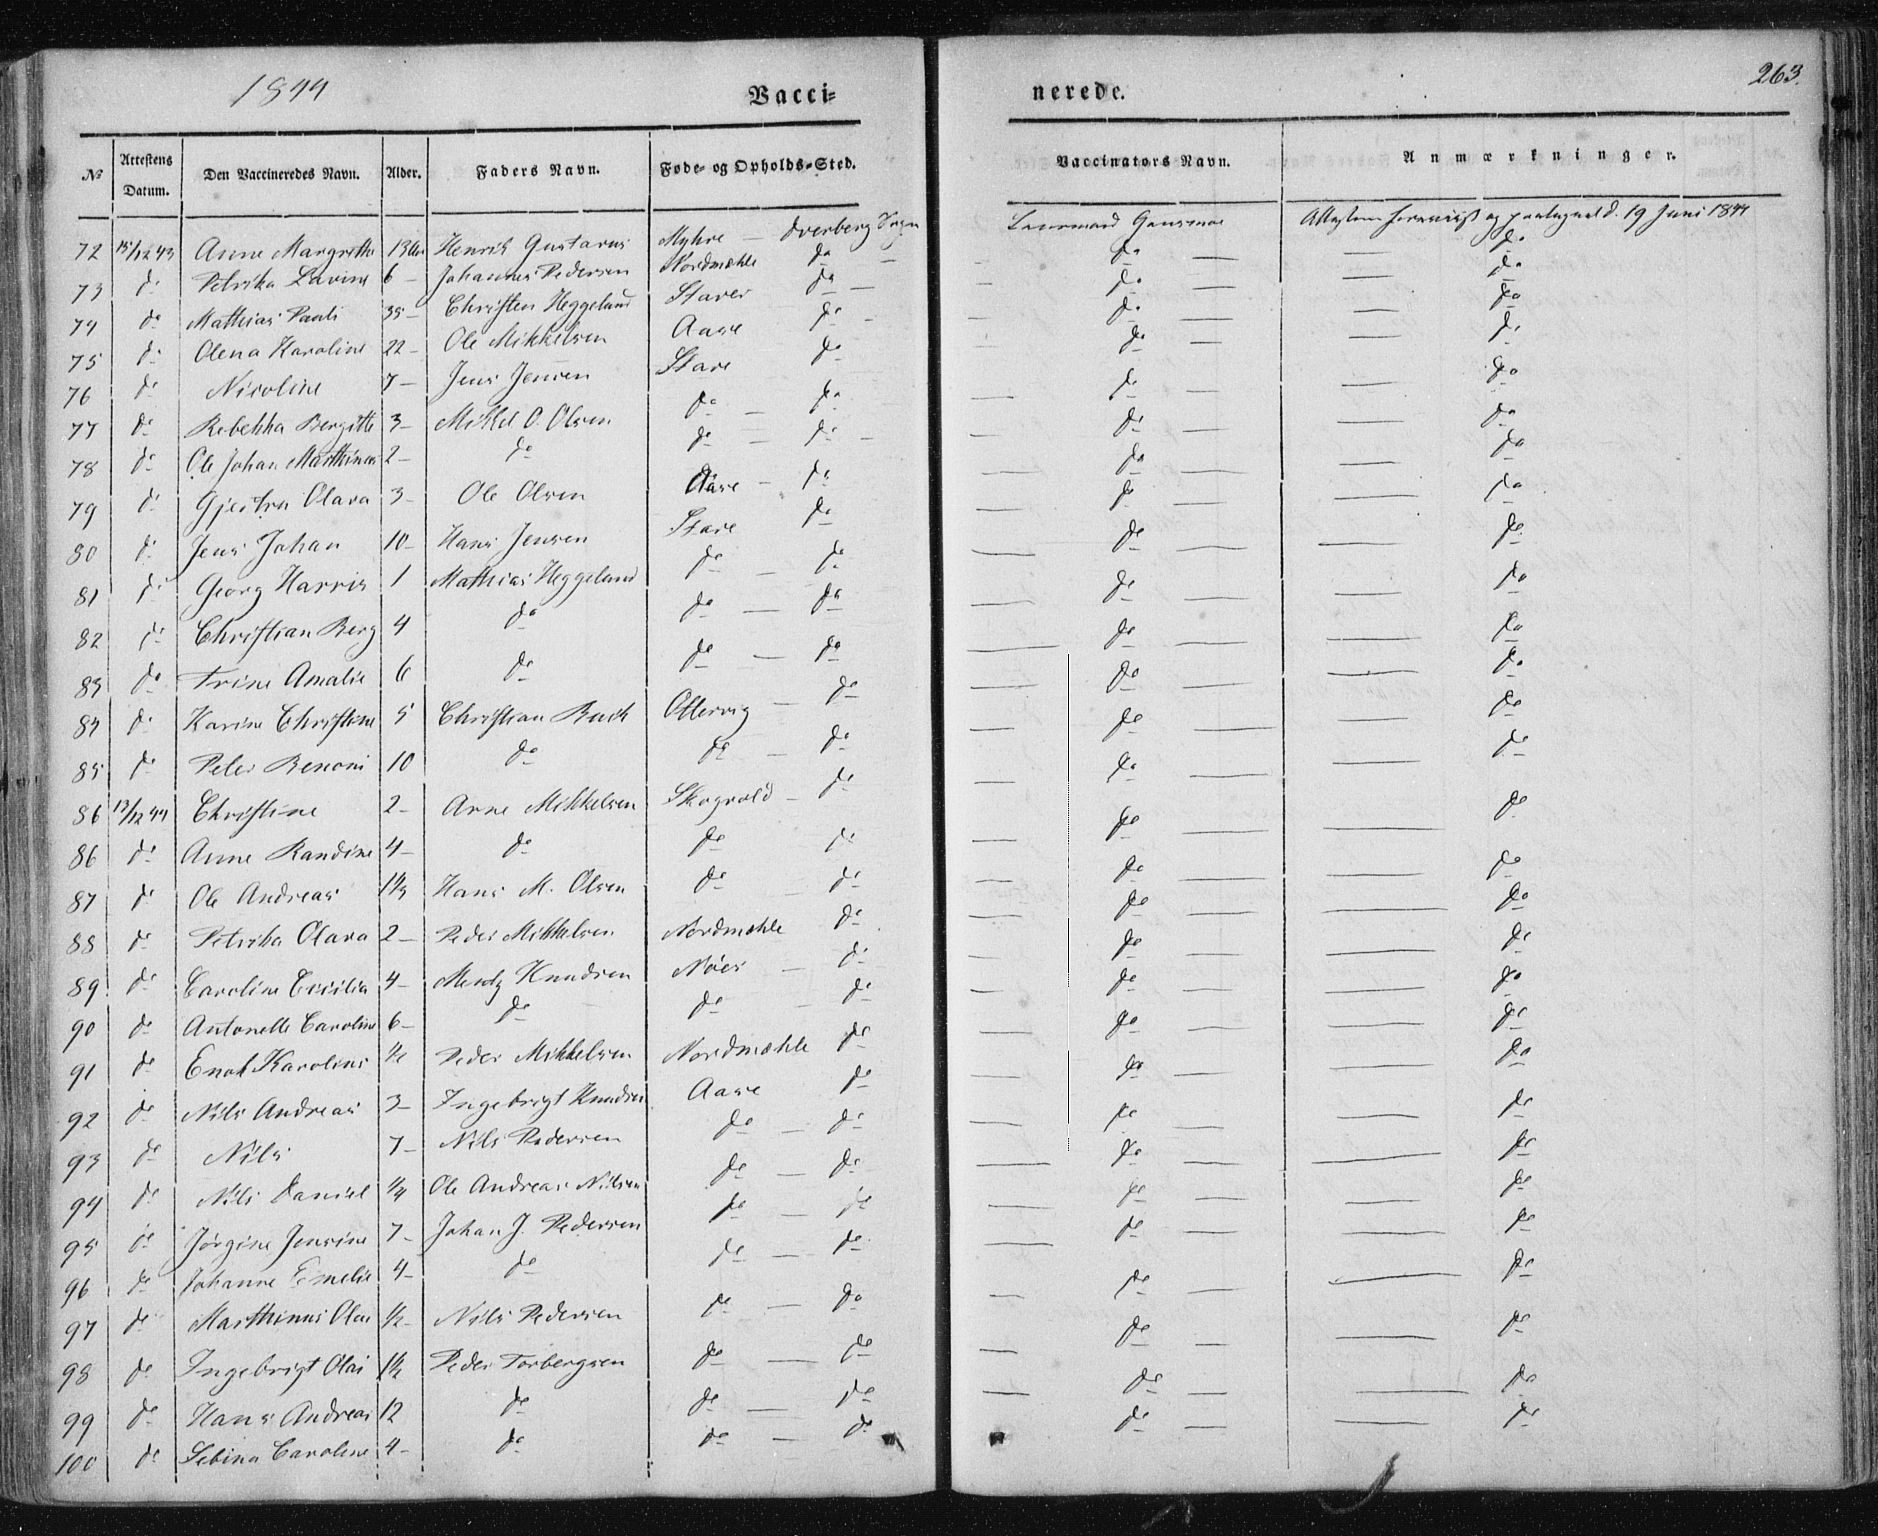 1844
Vacci=
nerede.
263.
No Attestens Datum. Den Vaccineredes Navn. Alder. Faders Navn. Føde- og Opholds-Sted. Vaccinators Navn. Anmærkninger.
72 Anne Margrethe 13 Henrik Gustavus Myhre — Dverberg Sogn Attesten foreviist og paategned d. 19 Juni 1844
73 do Petrika Lavine 6 — Johannes Pedersen Nordmæhle do — do — do
74 do Mathias Pauli 35 — Christen Heggelund Staves do — do — do
75 do Olena Karoline 22 — Ole Mikkelsen Aase do — do — do
76 do Nicoline 7 — Jens Jensen Stave do — do — do
77 do Rebekka Bergitte 3 — Mikkel O. Olsen do — do — do — do
78 do Ole Johan Marthinus 2 — do do — do — do — do
79 do Olava 3 — Ole Olsen Aase — do — do — do
80 do Jens Johan 10 — Hans Jensen Stave do — do — do
81 do Georg Harris 1 Mathias Heggelund do — do — do — do
82 do Christian Berg 4 do do — do — do — do
83 do Trine Amalie 6 do do — do — do — do
84 do Karine Christine 5 Christian Buck Ottervig — do — do — do
85 do Peter Benoni 10 do do — do — do — do
86 13/12 44 Christine 2 — Arne Mikkelsen Skogvold — do — do — do
86 do Anne Randine 4 — do do do — do — do
87 do Ole Andreas Hans M. Olsen do — do — do — do
88 do Petrika Olava 2 — Peder Mikkelsen Nordmæhle do — do — do
89 do Caroline Cecilia 4 — Mentz Knudsen Nöis — do — do — do
90 do Antonette Caroline 6 — do do — do — do — do
91 do Enok Karolius Peder Mikkelsen Nordmæhle do — do — do
92 do Nils Andreas 3 — Ingebrigt Knudsen Aase do — do — do
93 do Nils 7 — Nils Pedersen do — do — do — do
94 do Nils Daniel 1/4 Ole Andreas Nilsen do — do — do — do
95 do Jørgine Jensine 7 — Johan J. Pedersen do — do — do — do
96 do Johanne Emelie 4 — do do — do — do — do
97 do Marthinus Olai 1/2 — Nils Pedersen do — do — do — do
98 do Ingebrigt Olai 1 1/2 Peder Torbergsen do — do — do — do
99 do Hans Andreas 12 do do — do — do — do
100 do Sebina Caroline 4 — do do — do — do — do